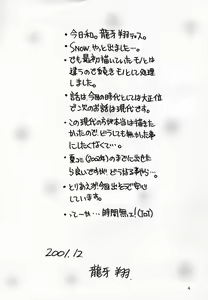 ・今日和。龍牙 翔デス。
・Snow. やっと出ました…。
・でも最初描いていたモノとは
違うので続きモノとして処理
しました。
・話は今回の時代としては大正位
で次のお話は現代です。
・この現代の方が本当は描きた
かったので、どうしても無かった事に
したくなくて…。
・夏コミ(2002年)のまでに出せた
ら良いですがどうなる事やら…。
・とりあえず今回出せて安心
しています。
・ってーか…時間無ェ!(ToT)
2001.12
龍牙 翔.
4